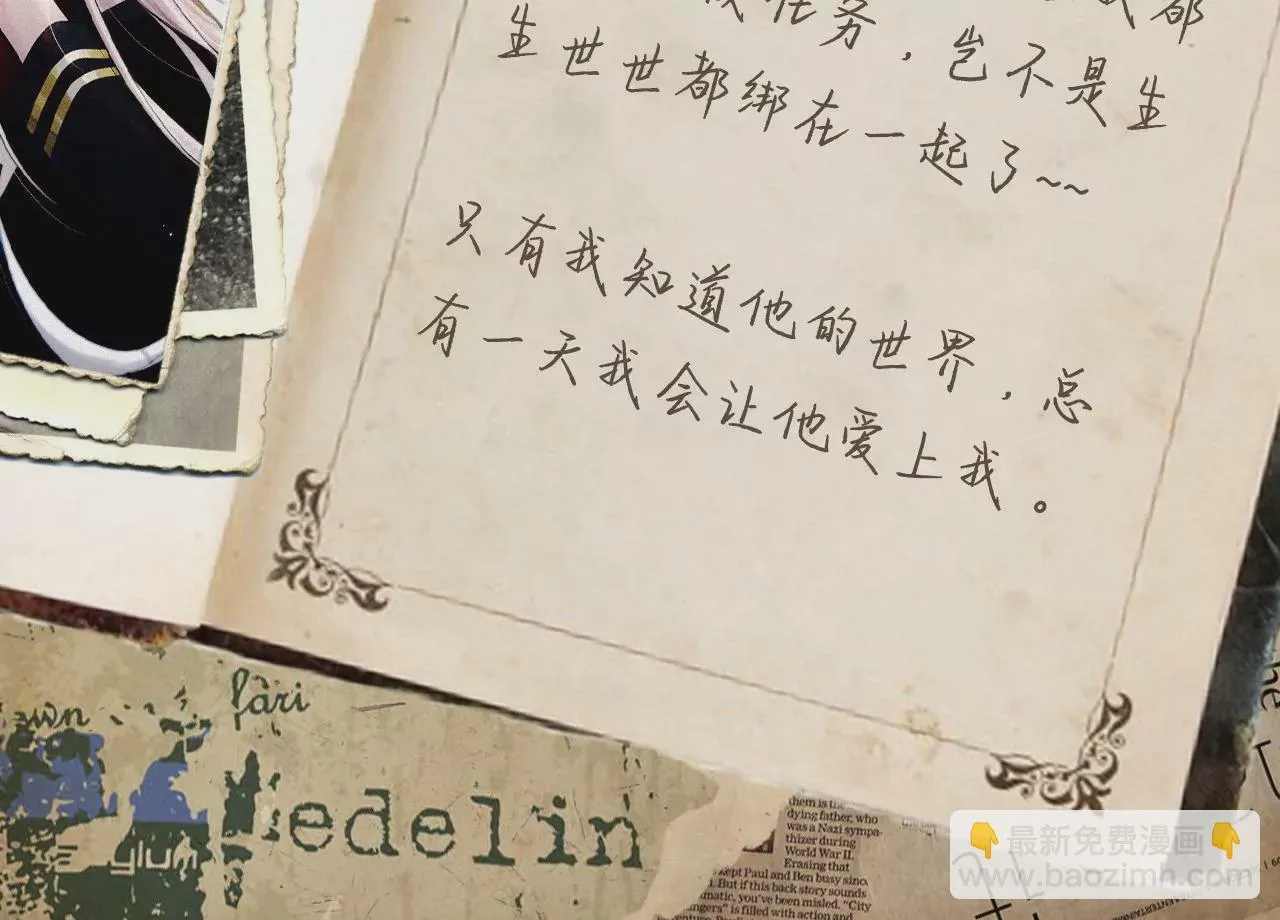 任务，岂不是生
生世世都绑在一起了~~
只有我知道他的世界，总
有一天我会让他爱上我。
fàri
edelin
them is the
dying father, who
was a Nazi sympa-
thizer during
World War II.
Erasing that
kept Paul and Ben busy since
But if this back story sounds
matic, you've been misled. "City
ngers" is filled with action and
👇最新免费漫画👇
www.baozimh.com